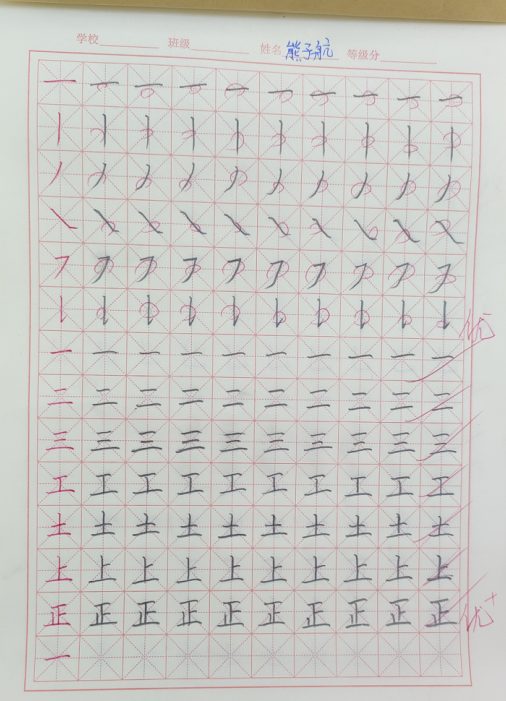 学校 班级 姓名 熊子航 等级分
一 一 一 一 一 一 一 一 一 一
丨 丨 丨 丨 丨 丨 丨 丨 丨 丨
丿 丿 丿 丿 丿 丿 丿 丿 丿 丿
㇏ ㇏ ㇏ ㇏ ㇏ ㇏ ㇏ ㇏ ㇏ ㇏
㇇ ㇇ ㇇ ㇇ ㇇ ㇇ ㇇ ㇇ ㇇ ㇇
优-
一 一 一 一 一 一 一 一 一 一
二 二 二 二 二 二 二 二 二 二
三 三 三 三 三 三 三 三 三 三
工 工 工 工 工 工 工 工 工 工
土 土 土 土 土 土 土 土 土 土
上 上 上 上 上 上 上 上 上 上
正 正 正 正 正 正 正 正 正 正 优+
一